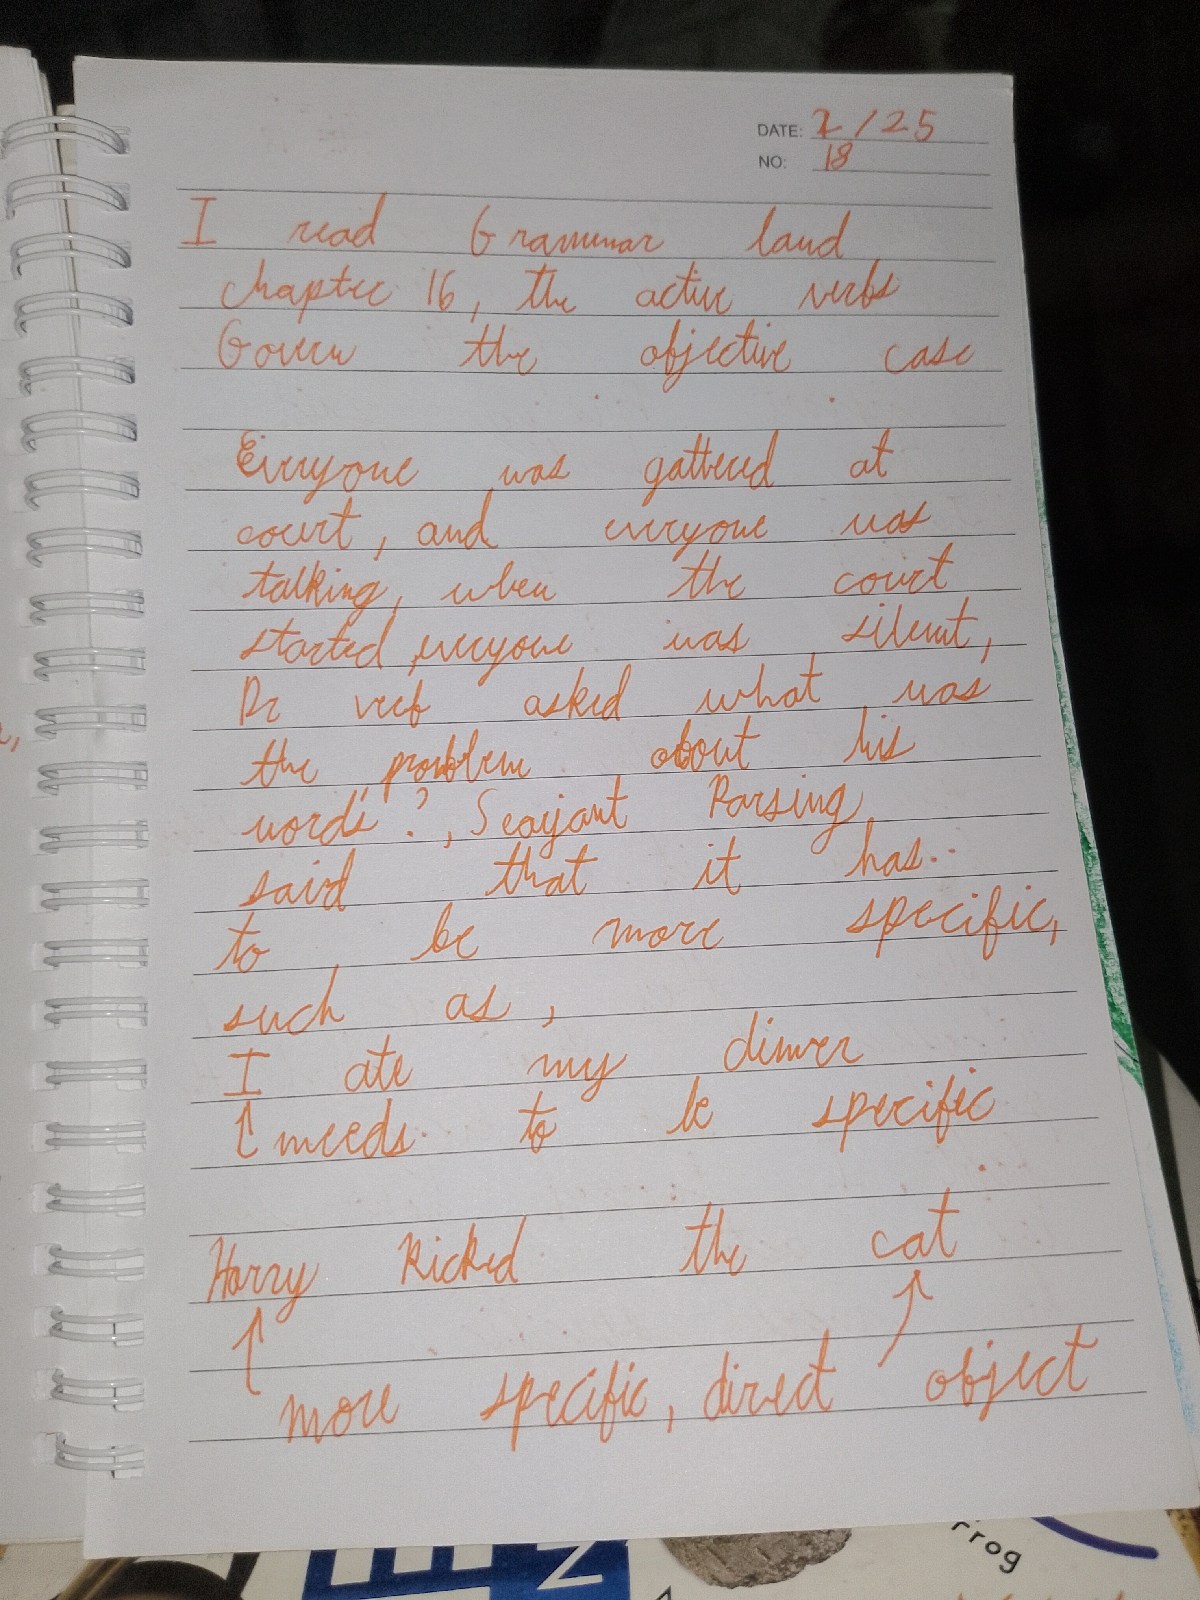 DATE: 2/25
NO: 18
I read Grammar land
chapter 16, the active verbs
Govern the objective case
Everyone was gathered at
court, and everyone was
talking, when the court
started, everyone was silent,
Dr verb asked what was
the problem about his
words?, Seayjant Parsing,
said that it has..
to be more specific,
such as,
I ate my dinner
↑ needs to be specific
Harry kicked the cat
↑ ↑
more specific, direct object
rrog